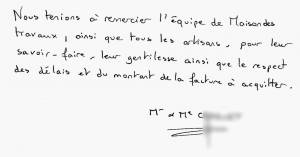 Nous tenions à remercier l'équipe de Maisondes
travaux, ainsi que tous les artisans, pour leur
savoir-faire, leur gentillesse ainsi que le respect
des délais et du montant de la facture à acquitter.
Mr & Me C